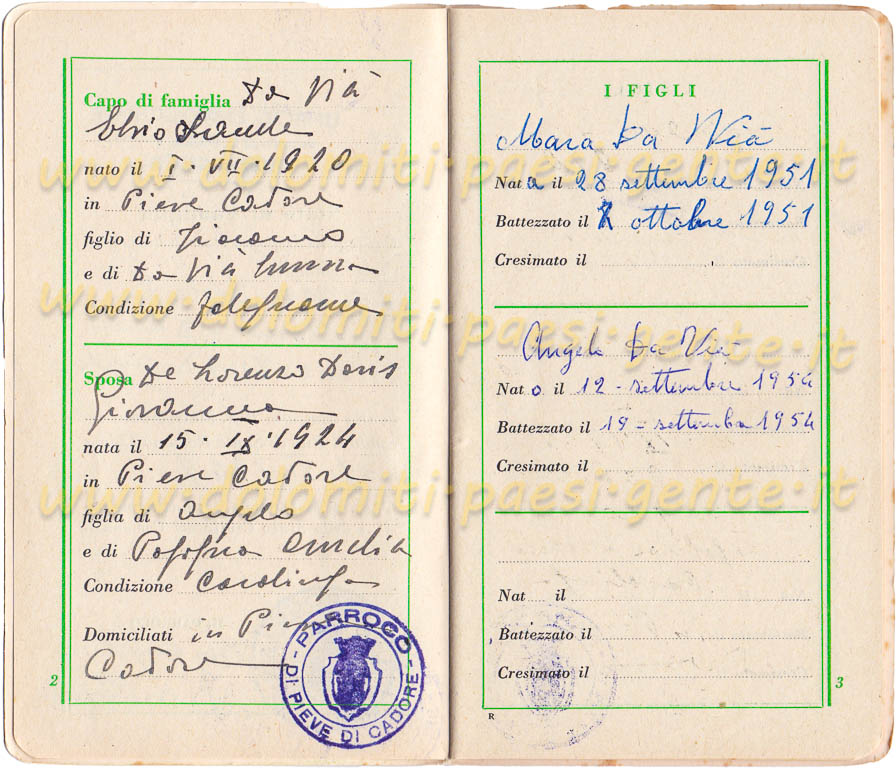 Capo di famiglia Da Vià
nato il I. VII. 1920
in Pieve Cadore
figlio di Giacomo
e di Da Vià
Condizione falegname
Sposa De Lorenzo Doris
Giovanna
nata il 15. IX. 1924
in Pieve Cadore
figlia di Angelo
e di Aurelia
Condizione Casalinga
Domiciliati in Pieve
Cadore
PARROCO
DI PIEVE DI CADORE
2
I FIGLI
Mara Da Vià
Nata il 28 settembre 1951
Battezzato il ottobre 1951
Cresimato il
Angelo Da Vià
Nato il 12 - settembre 1954
Battezzato il 19 - settembre 1954
Cresimato il
Nat il
Battezzato il
Cresimato il
R
3
www.dolomiti-paesi-gente.it
www.dolomiti-paesi-gente.it
www.dolomiti-paesi-gente.it